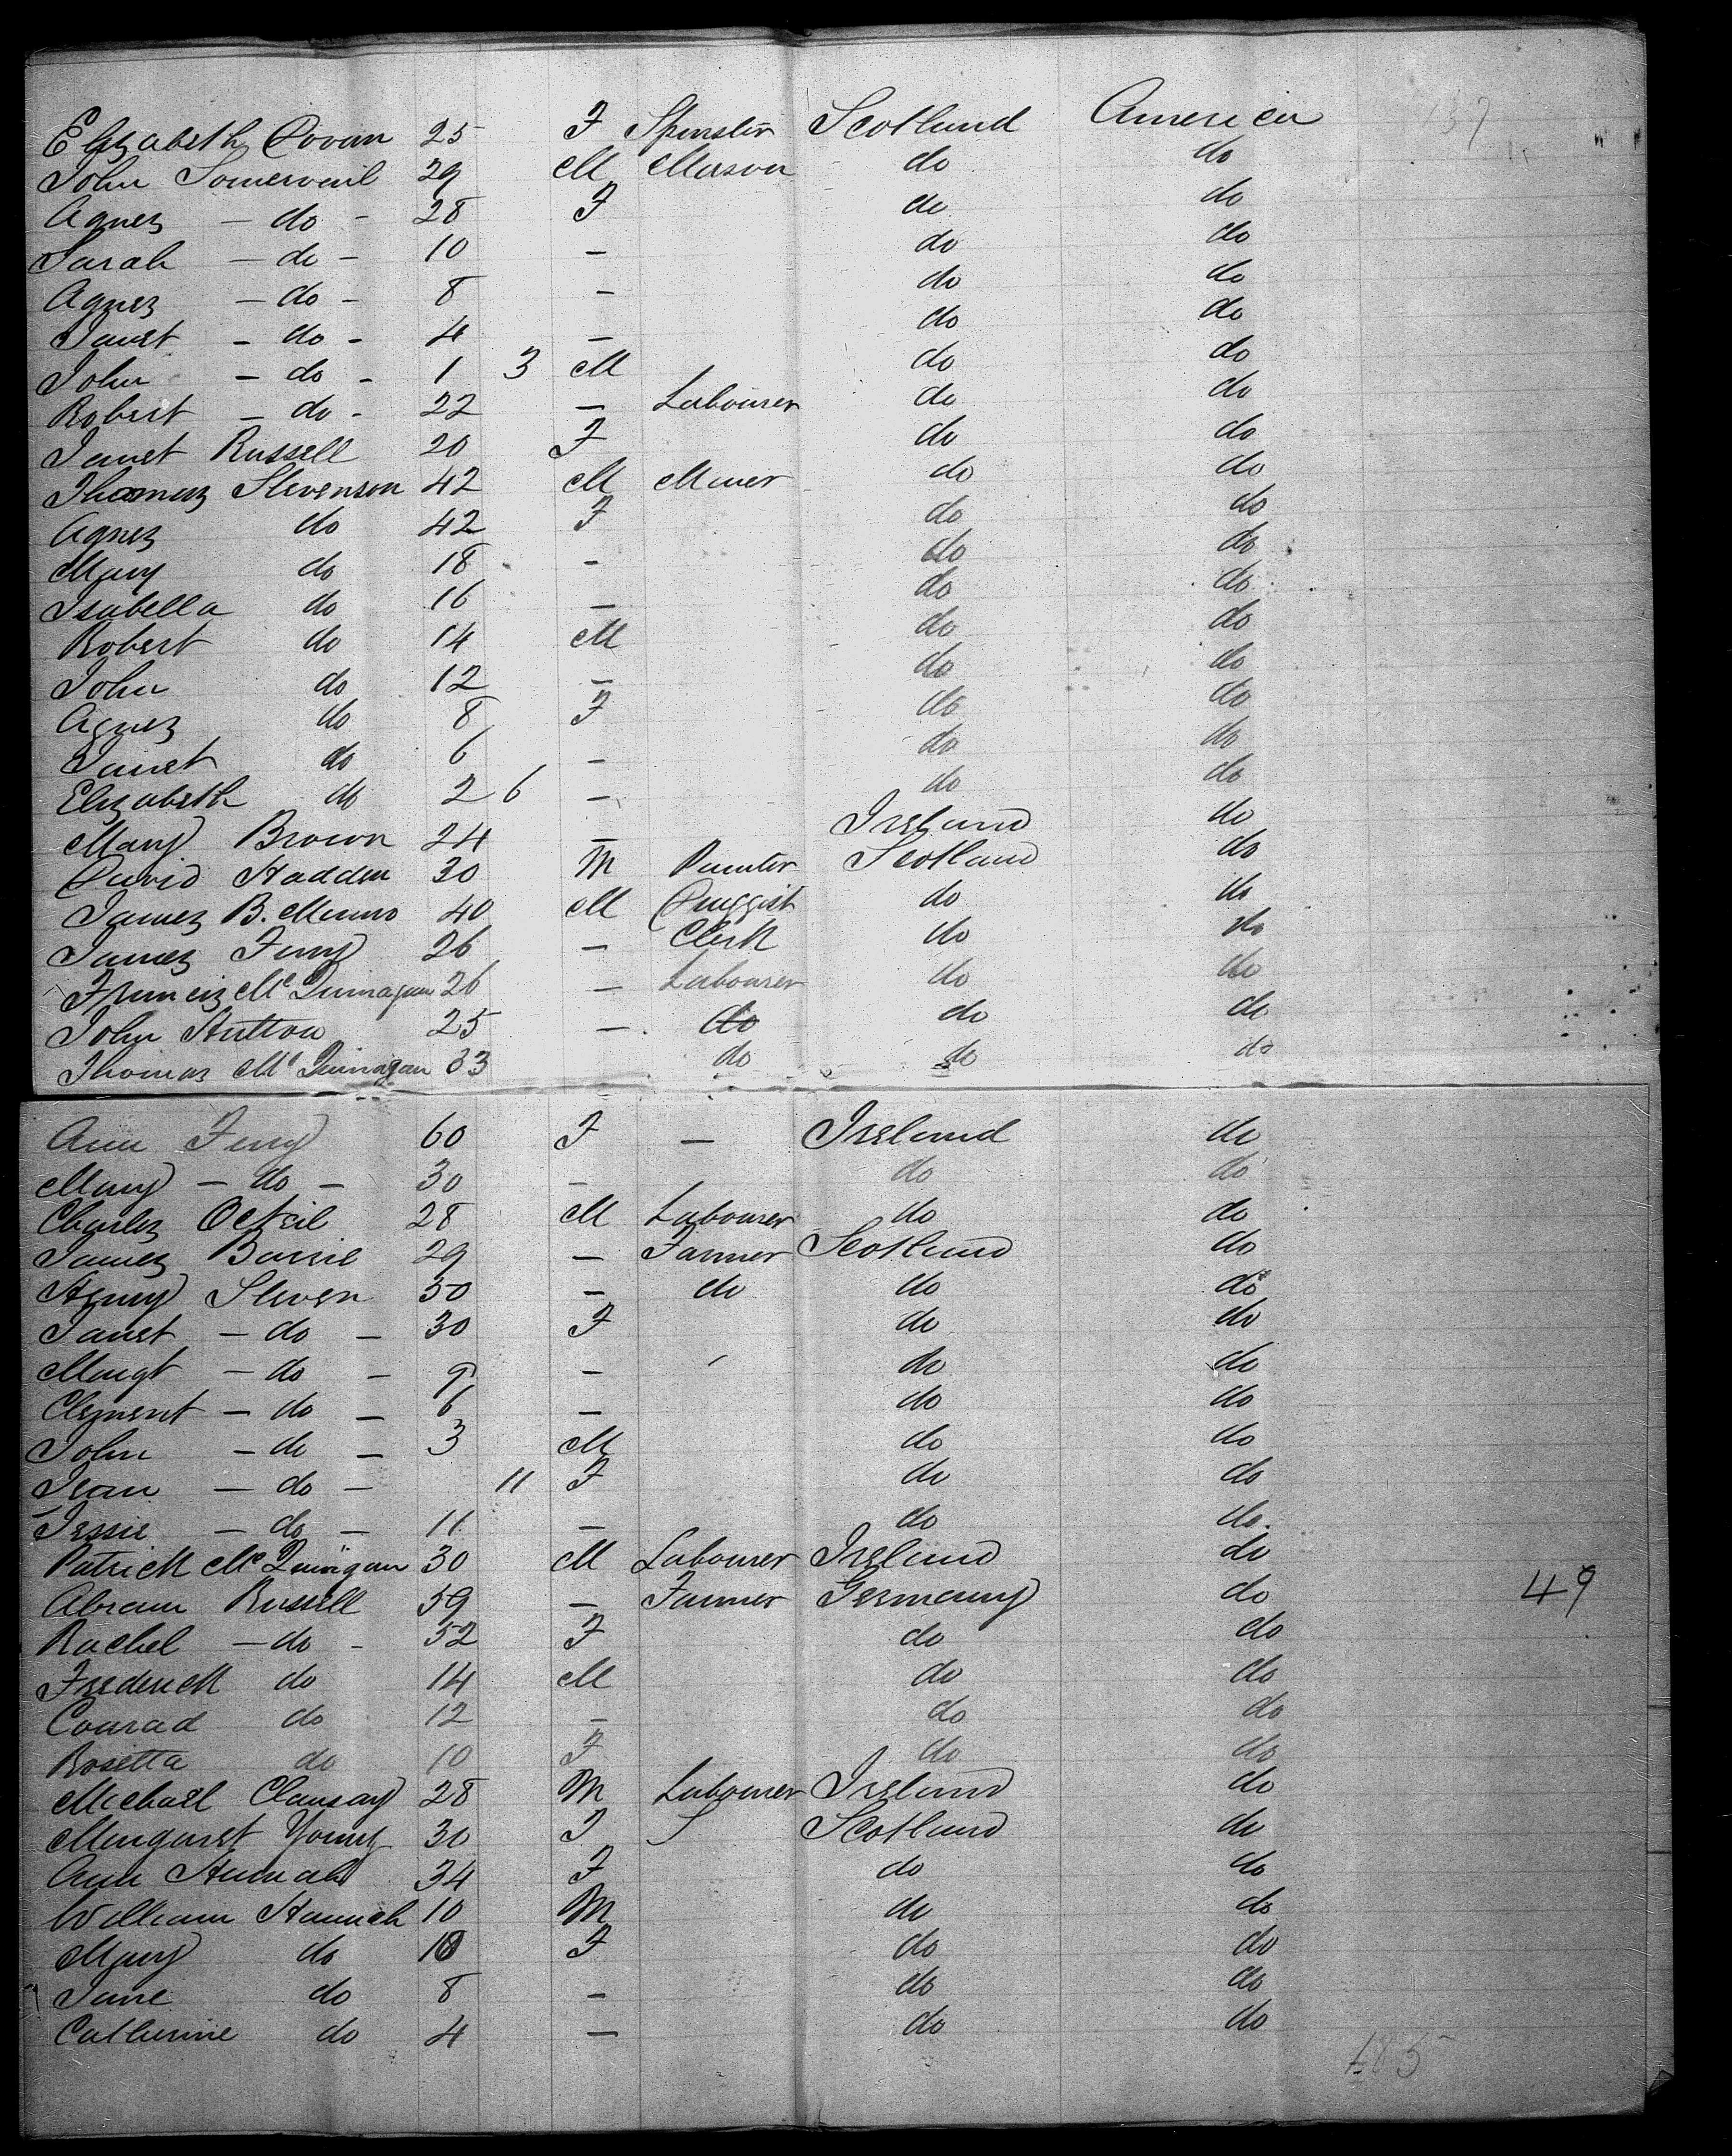 137
Elizabeth Covan 25 F Spinster Scotland America
John Somervail 29 M Mason do do
Agnes – do – 28 F do do
Sarah – do – 10 – do do
Agnes – do – 8 – do do
Janet – do – 4 – do do
John – do – 1 3 M do do
Robert – do – 22 – Labourer do do
Janet Russell 20 F do do
Thomas Stevenson 42 M Miner do do
Agnes do 42 F do do
Mary do 18 – do do
Isabella do 16 – do do
Robert do 14 M do do
John do 12 – do do
Agnes do 8 F do do
Janet do 6 – do do
Elizabeth do 2 6 – do do
Mary Brown 24 – Ireland do
David Hadden 30 M Painter Scotland do
James B. Munro 40 M Druggist do do
James Ferry 26 – Clerk do do
Francis Mc Quinagan 26 – Labourer do do
John Hutton 25 – do do do
Thomas Mc Quinagan 33 do do do
Ann Ferry 60 F – Ireland do
Mary – do – 30 – do do
Charles ONeil 28 M Labourer do do
James Barrie 29 – Farmer Scotland do
Henry Steven 30 – do do do
Janet – do – 30 F do do
Margt – do – 9 – do do
Clement – do – 6 – do do
John – do – 3 M do do
Jean – do – 11 F do do
Jessie – do – 11 – do do
Patrick Mc Quinigan 30 M Labourer Ireland do
Abram Russell 59 – Farmer Germany do 49
Rachel – do – 52 F do do
Frederick do 14 M do do
Conrad do 12 – do do
Rosetta do 10 F do do
Michael 28 M Labourer Ireland do
Margaret Young 30 F S Scotland do
Ann Hannah 34 F do do
William Hannah 10 M do do
Mary do 10 F do do
Jane do 8 – do do
Catherine do 4 – do do